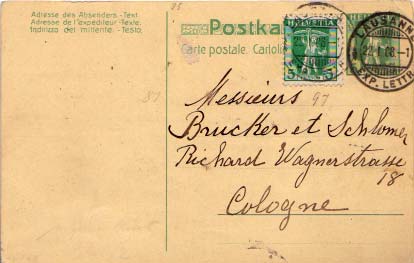 Adresse des Absenders - Text
Adresse de l'expéditeur - Texte.
Indirizzo del mittente. - Testo.
Postka
Carte postale. Cartoli
HELVETIA
LAUSANNE
22.I.08
EXP. LETT
Messieurs
Brucker et Schlomer
Richard Wagnerstrasse
18
Cologne